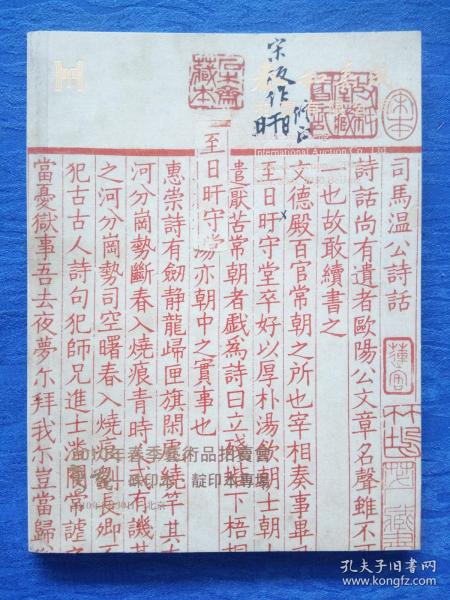 司馬温公詩話
詩話尚有遺者歐陽公文章名聲雖不可
也故敢續書之
文德殿百官常朝之所也宰相奏事畢
至日旰守堂卒好以厚朴湯飲朝士朝士
遣厭苦常朝者戲為詩曰立殘階下梧桐
至日旰守堂
湯亦朝中之實事也
惠崇詩有劒静龍歸匣旗閑虎繞竿其
河分崗勢斷春入燒痕青時或有譏其
之河分崗勢司空曙春入燒痕劉長卿
犯古古人詩句犯師兄進士潘閬常謔之
當憂獄事吾去夜夢尔拜我尔豈當歸
宋版作
旰
International Auction Co., Ltd
年春季藝術品拍賣會
藍印本專場
北京
孔夫子旧书网
www.kongfz.com